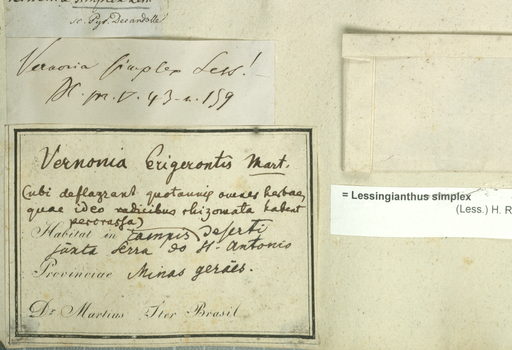 simplex Less.
sc. Pyr. Decandolle
Vernonia simplex Less!
DC. pr. V. 43. n. 159
Vernonia Erigerontis Mart.
(ubi deflagrant quotannis omnes herbae,
quae ideo radicibus rhizomata habent
percrassa)
Habitat in campis deserti
juxta Serra do St. Antonio
Provinciae Minas geräes.
Dr. Martius Iter Brasil
= Lessingianthus simplex
(Less.) H. R